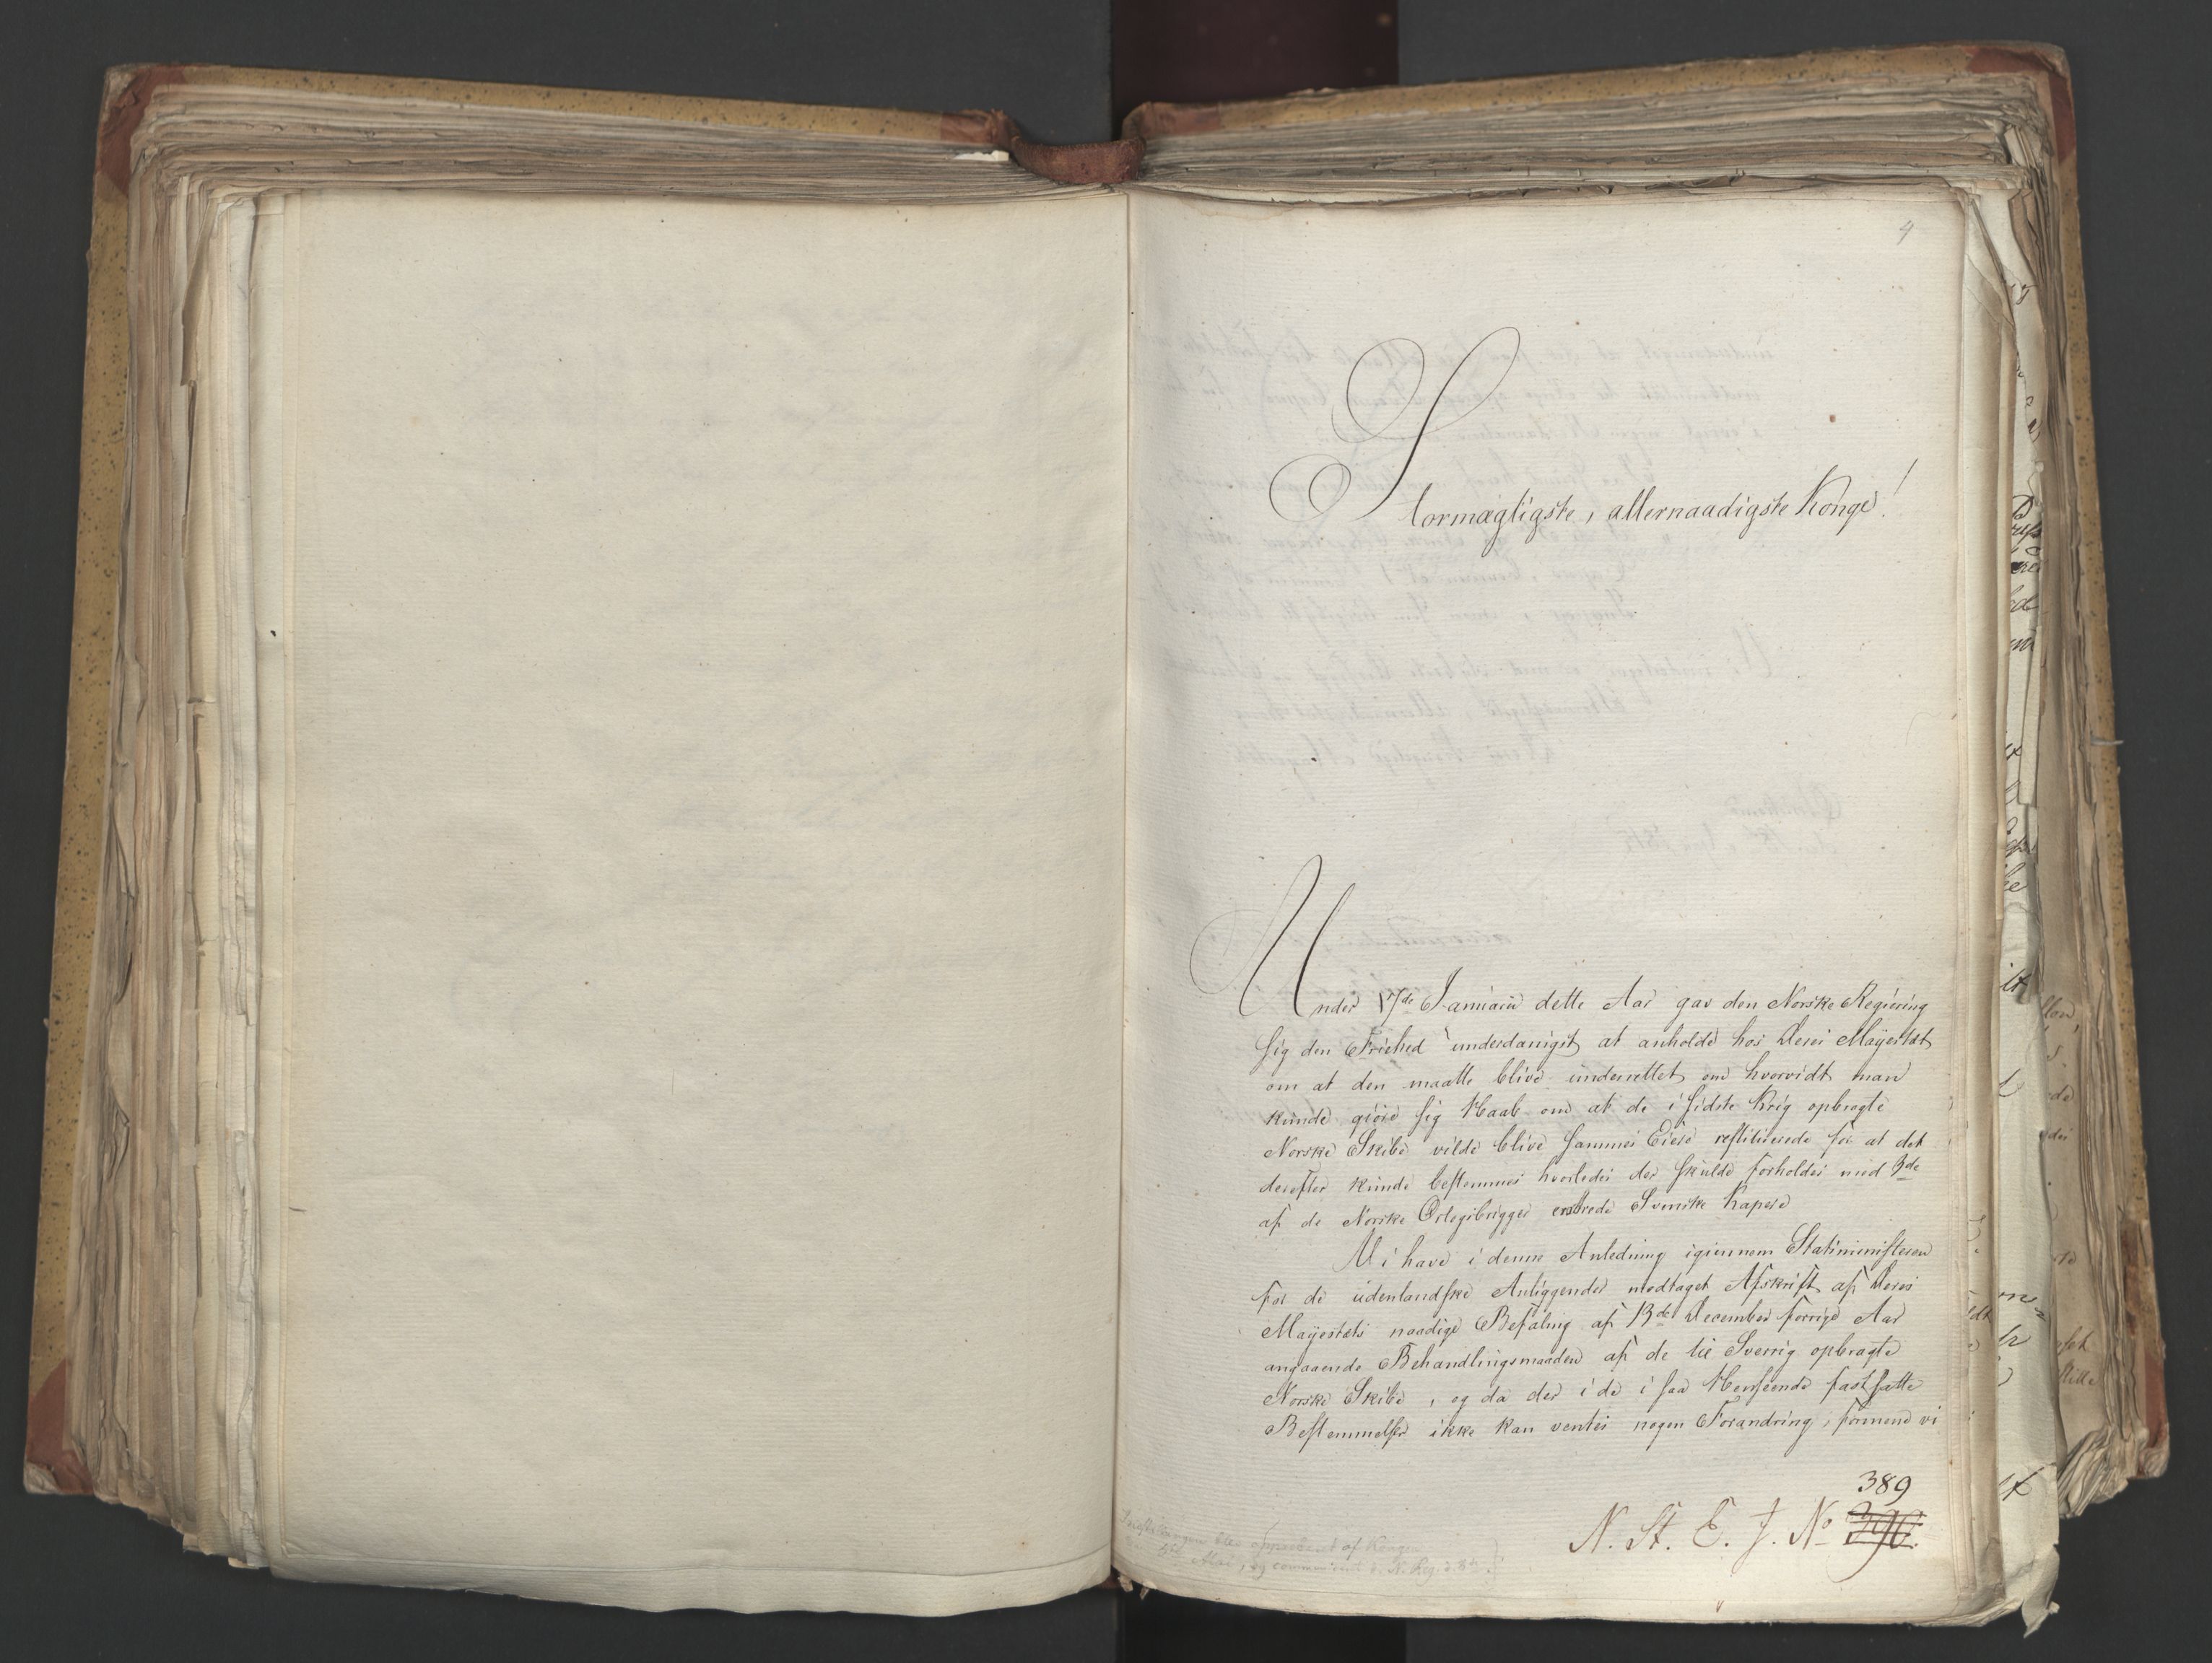 4
Stormægtigste, allernaadigste Konge!
Under 17de Januarii dette Aar gav den Norske Regiering
sig den Friehed underdanigst at anholde hos Deres Majestæt
om at den maatte blive underrettet om hvorvidt man
kunde giøre sig Haab om at de i sidste Krig opbragte
Norske Skibe vilde blive sammes Eiere restituerede for at det
derefter kunde bestemmes hvorledes der skulde forholdes med 3de
af de Norske Orlogsbrigger erobrede Svenske Kapere
Vi have i denne Anledning igiennem Statsministeren
for de udenlandske Anliggender modtaget Afskrift af Deres
Majestæts naadige Befaling af 13de December forrige Aar
angaaende Behandlingsmaaden af de til Sverrig opbragte
Norske Skibe, og da der i de i saa Henseende fastsatte
Bestemmelser ikke kan ventes nogen Forandring, formene vi
389
N. St. E. J. No 396.
Indstillingen blev approberet af Kongen
Mai, og communiceret d. N. Reg. d. 8de